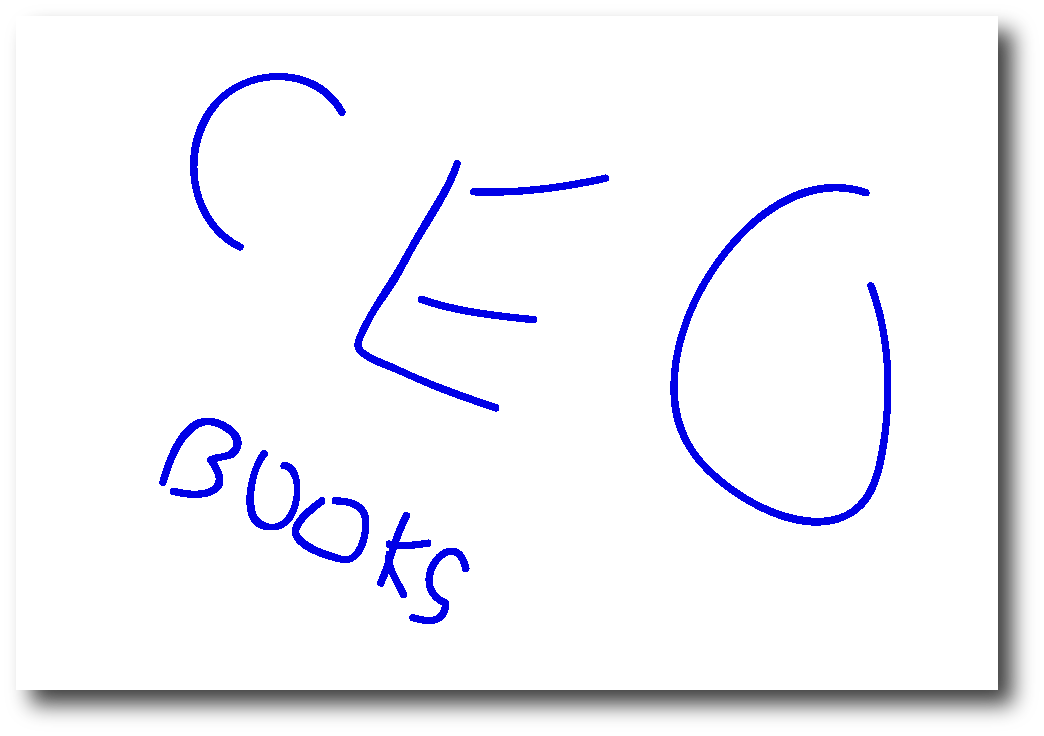 CEO
BOOKS